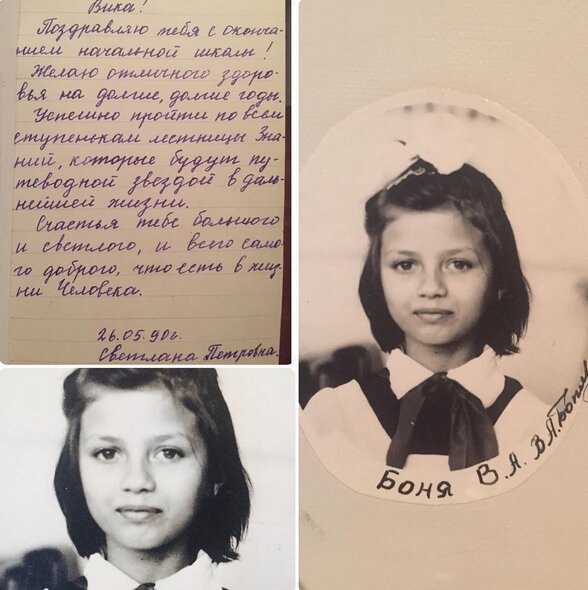 Вика!
Поздравляю тебя с оконча-
нием начальной школы!
Желаю отличного здоро-
вья на долгие, долгие годы.
Успешно пройти по всем
ступенькам лестницы Зна-
ний, которые будут пу-
теводной звездой в даль-
нейшей жизни.
Счастья тебе большого
и светлого, и всего само-
го доброго, что есть в жиз-
ни Человека.
26.05.90г.
Светлана Петровна.
Боня В.А.